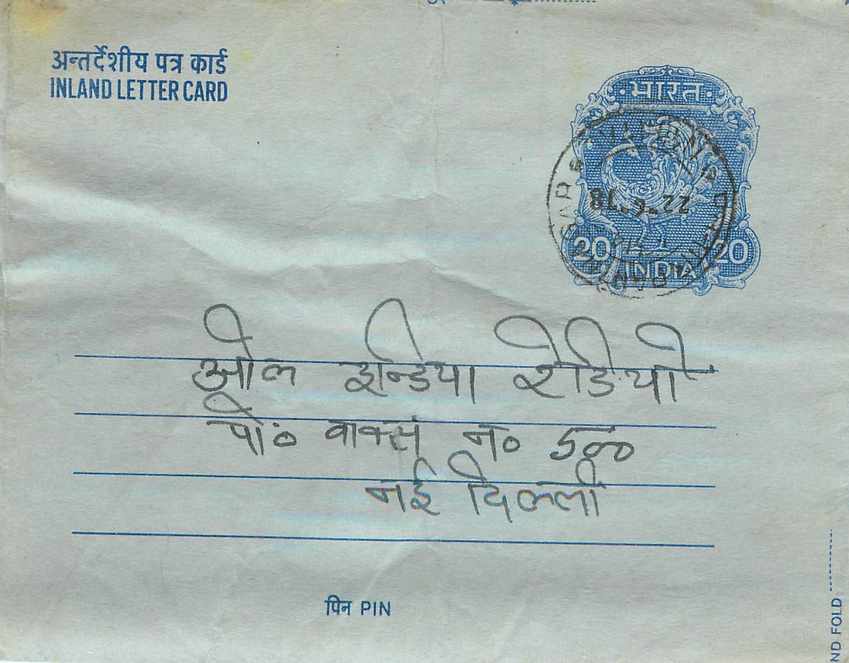 अन्तर्देशीय पत्र कार्ड
INLAND LETTER CARD
भारत
22-6-78
20 20
INDIA
ओल इन्डिया रेडियो
पो० वाक्स न० 500
नई दिल्ली
पिन PIN
ND FOLD